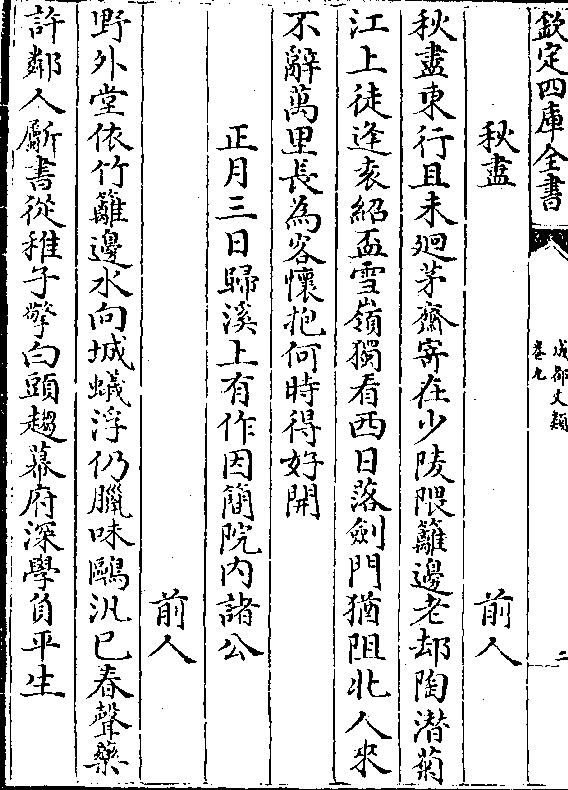 欽定四庫全書
成都文類
卷九
二
秋盡
前人
秋盡東行且未廻茅齋寄在少陵隈籬邊老却陶潛菊
江上徒逢袁紹盃雪嶺獨看西日落劍門猶阻北人來
不辭萬里長為客懷抱何時得好開
正月三日歸溪上有作因簡院內諸公
前人
野外堂依竹籬邊水向城蟻浮仍臘味鷗汎已春聲藥
許鄰人斸書從稚子擎白頭趨幕府深學負平生